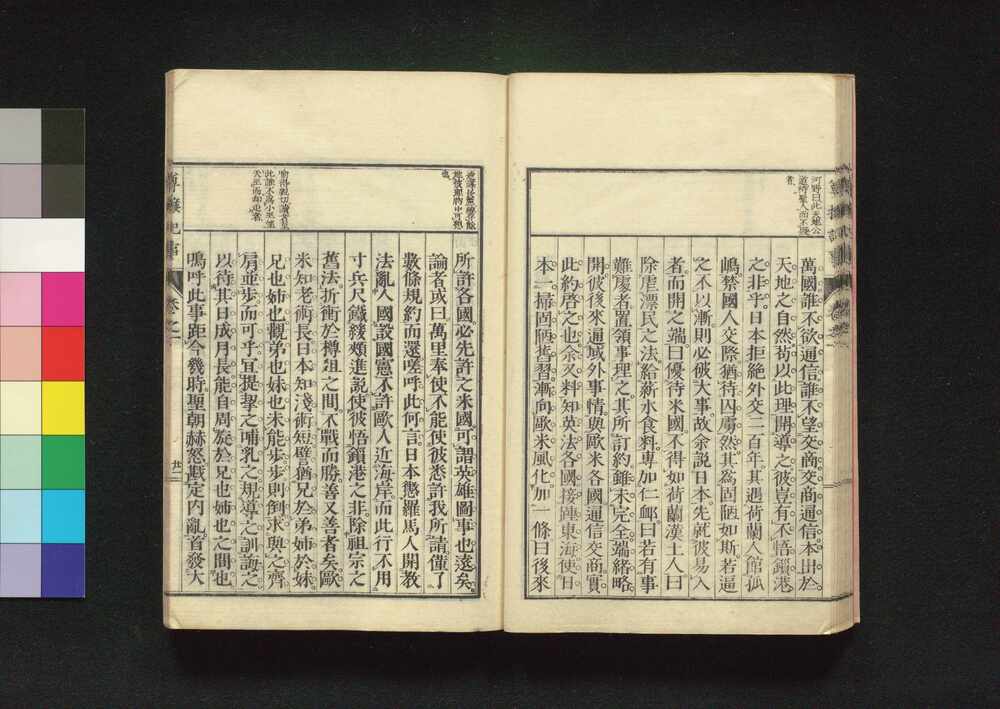 河野曰此夫婁公
道待
者
萬國誰不欲通信誰不望交商交商通信本出於
天地之自然苟以此理開導之彼豈有不悟鎖港
之非乎日本拒絶外交二百年其遇荷蘭人館孤
嶋禁國人交際猶待囚虜然其爲固陋如斯若逼
之不以漸則必破大事故余説日本先就彼易入
者而開之端曰優待米國不得如荷蘭漢土人曰
除虐漂民之法給薪水食料專加仁卹曰若有事
難處者置領事理之其所訂約雖未完全端緒略
開彼後來通域外事情與歐米各國通信交商實
此約啓之也余又料知英法各國接陣東海使日
本一掃固陋舊習漸向歐米風化加一條曰後來
所許各國必先許之米國可謂英雄圖事也遠矣
論者或曰萬里奉使不能使彼悉許我所請僅了
數條規約而還嗟呼此何言日本懲羅馬人開教
法亂人國設國憲不許歐人近海岸而此行不用
寸兵尺鐵綏頰進説使彼悟鎖港之非除祖宗之
舊法折衝於樽俎之間不戰而勝善又善者矣歐
米知老術長日本知淺術短譬猶兄於弟姉於妹
兄也姉也觀弟也妹也未能歩歩則倒求與之齊
肩並歩而可乎冝提挈之哺乳之規導之訓誨之
以待其日成月長能自周旋於兄也姉也之間也
嗚呼此事距今幾時聖朝赫怒戡定内亂首發大
尊攘紀事
卷之一
廿二